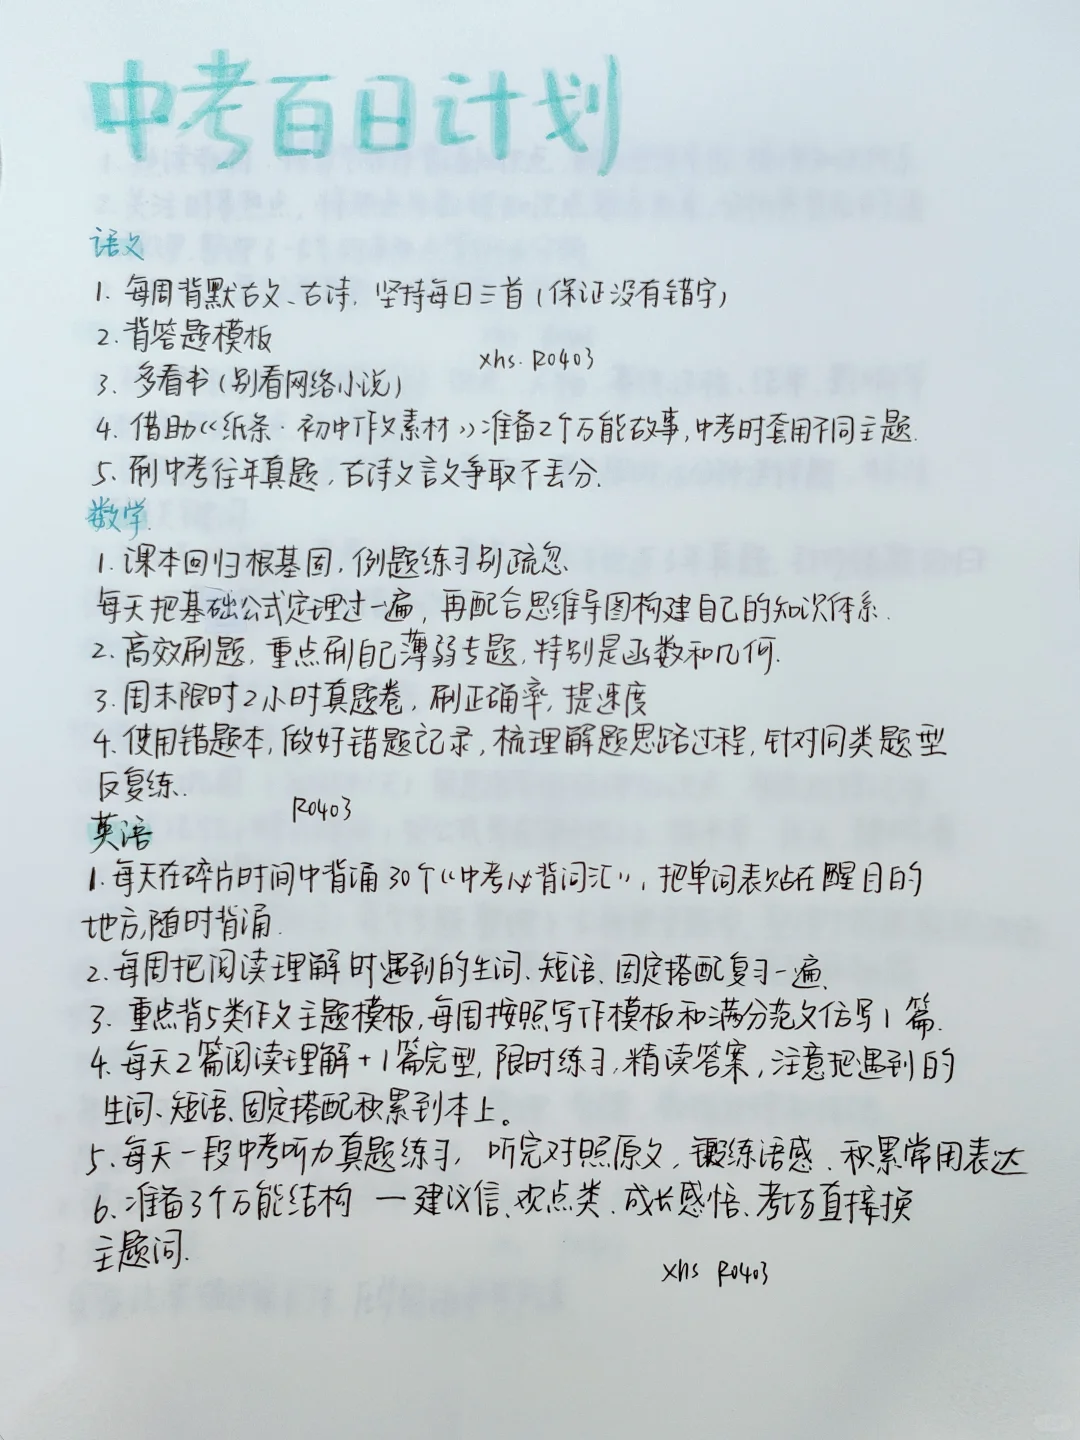 中考百日计划
语文
1. 每周背默古文、古诗，坚持每日三首（保证没有错字）
2. 背答题模板
xhs. R0403
3. 多看书（别看网络小说）
4. 借助《纸条·初中作文素材》准备2个万能故事，中考时套用不同主题.
5. 刷中考往年真题，古诗文言文争取不丢分.
数学.
1. 课本回归根基固，例题练习别疏忽
每天把基础公式定理过一遍，再配合思维导图构建自己的知识体系.
2. 高效刷题，重点刷自己薄弱专题，特别是函数和几何.
3. 周末限时2小时真题卷，刷正确率，提速度
4. 使用错题本，做好错题记录，梳理解题思路过程，针对同类题型
反复练.
R0403
英语
1. 每天在碎片时间中背诵30个《中考必背词汇》，把单词表贴在醒目的
地方，随时背诵.
2. 每周把阅读理解时遇到的生词、短语、固定搭配复习一遍、
3. 重点背5类作文主题模板，每周按照写作模板和满分范文仿写1篇.
4. 每天2篇阅读理解+1篇完型，限时练习，精读答案，注意把遇到的
生词、短语、固定搭配积累到本上。
5. 每天一段中考听力真题练习，听完对照原文，锻练语感、积累常用表达
6. 准备3个万能结构 — 建议信、观点类、成长感悟、考场直接换
主题词.
xhs R0403